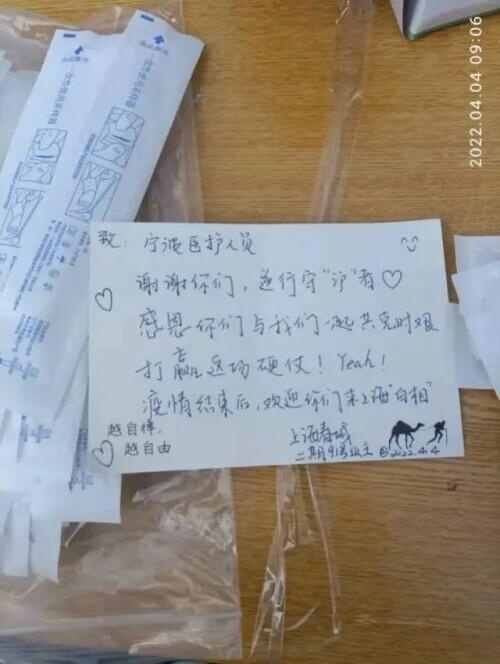 2022.04.04 09:06
一次性使用采样器
一次性使用采样器
致：宁波医护人员
谢谢你们，逆行守“沪”者♡
感恩你们与我们一起共克时艰
打赢这场硬仗！Yeah！
疫情结束后，欢迎你们来上海“白相”
越自律，
越自由
上海春城
二期91号业主 @2022.4.4